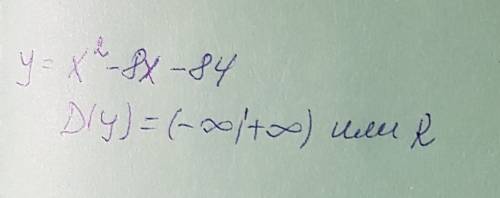 y = x² - 8x - 84
D(y) = (-∞; +∞) или R